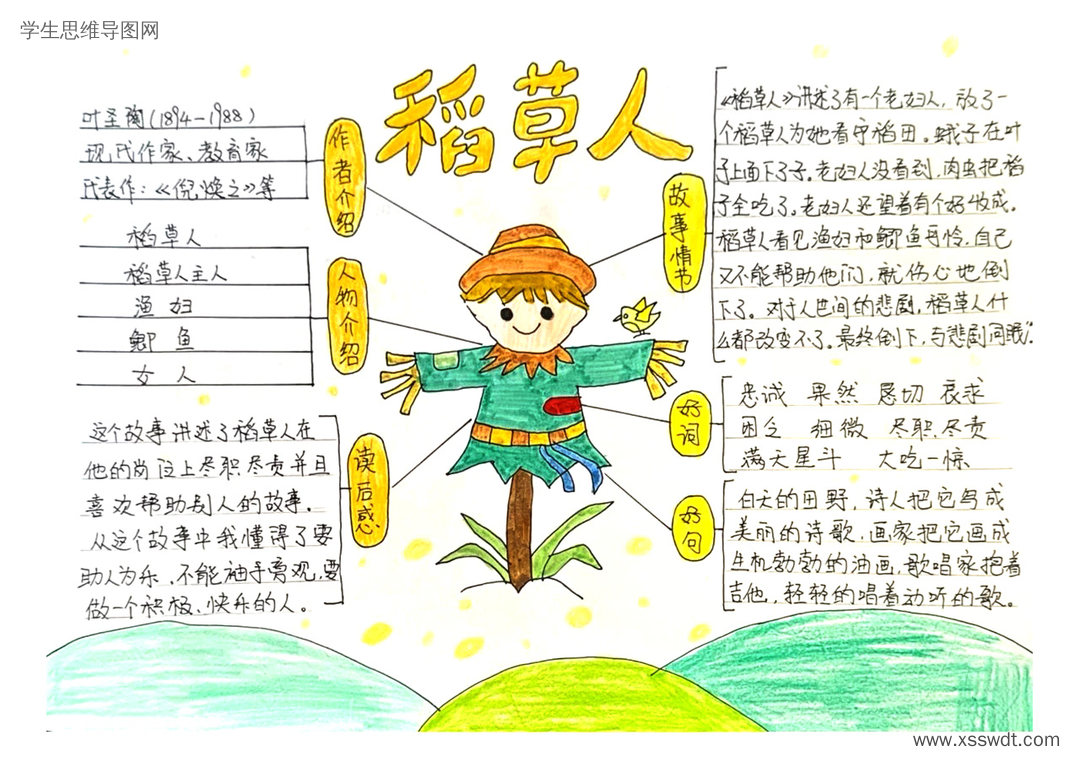 学生思维导图网
稻草人
作者介绍
叶圣陶(1894-1988)
现代作家、教育家
代表作:《倪焕之》等
人物介绍
稻草人
稻草人主人
渔妇
鲫鱼
女人
读后感
这个故事讲述了稻草人在
他的岗位上尽职尽责并且
喜欢帮助别人的故事.
从这个故事中我懂得了要
助人为乐、不能袖手旁观,要
做一个积极、快乐的人。
故事情节
《稻草人》讲述了有一个老妇人,放了一
个稻草人为她看守稻田。蛾子在叶
子上面下了子。老妇人没看到,肉虫把稻
子全吃了。老妇人还望着有个好收成。
稻草人看见渔妇和鲫鱼可怜,自己
又不能帮助他们,就伤心地倒
下了。对于人世间的悲剧,稻草人什
么都改变不了。最终倒下,与悲剧同眠”.
好词
忠诚 果然 恳切 哀求
困乏 细微 尽职尽责
满天星斗 大吃一惊
好句
白天的田野,诗人把它写成
美丽的诗歌,画家把它画成
生机勃勃的油画,歌唱家抱着
吉他,轻轻的唱着动听的歌。
www.xsswdt.com